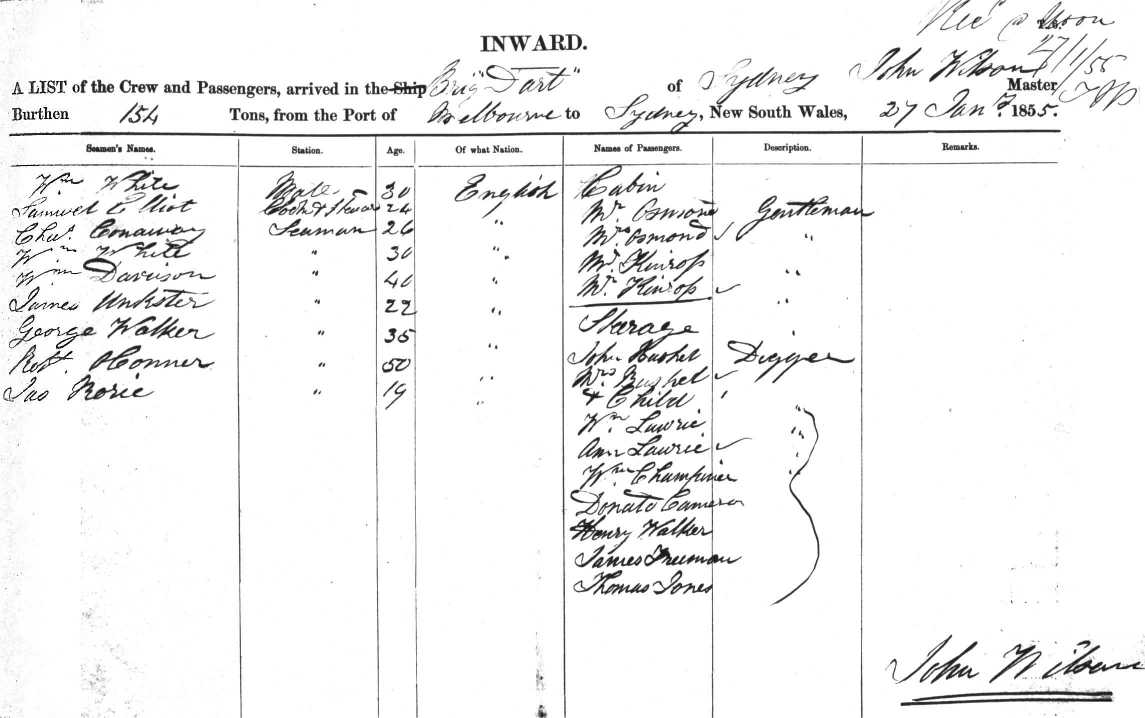 Recd @ Noon
27/1/55
INWARD.
A LIST of the Crew and Passengers, arrived in the Ship Brig "Dart" of Sydney John Wilson Master
Burthen 154 Tons, from the Port of Melbourne to Sydney, New South Wales, 27 Jany. 1855.
Seamen's Names. Station. Age. Of what Nation. Names of Passengers. Description. Remarks.
Wm White Mate 30 English Cabin
Samuel Elliot Cook & Stewar 24 Mr Osmond Gentleman
Chas. Conaway Seaman 26 " Mrs Osmond "
Wm White " 30 " Mr Kinross "
Wm Davison " 40 Mr. Kinross
James Unkster " 22 " "
Steerage
George Walker " 35 " "
John Bushel Digger
Robt. OConner " 50 " Mrs Bushel
Jas Rorie " 19 " & Child "
Wm Lawrie "
Ann Lawrie "
Wm Champiner "
Donald Cameron
Henry Walker
James Freeman
Thomas Jones
John Wilson